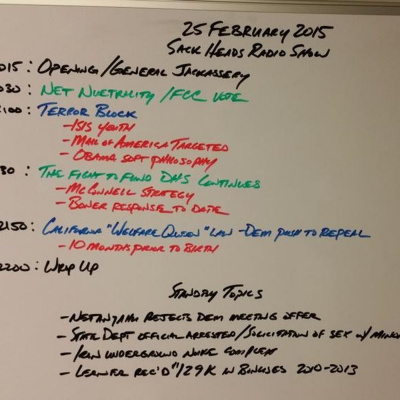 25 FEBRUARY 2015
SACK HEADS RADIO SHOW
015: OPENING/GENERAL JACKASSERY
030: NET NUETRILITY/FCC VOTE
100: TERROR BLOCK
- ISIS YOUTH
- MALL OF AMERICA TARGETED
- OBAMA SOFT PHILOSOPHY
30: THE FIGHT TO FUND DHS CONTINUES
- MCCONNELL STRATEGY
- BONER RESPONSE TO DATE
2150: CALIFORNIA "WELFARE QUEEN" LAW - DEM PUSH TO REPEAL
- 10 MONTHS PRIOR TO BIRTH
2200: WRAP UP
STANDBY TOPICS
- NETANYAHU REJECTS DEM MEETING OFFER
- STATE DEPT OFFICIAL ARRESTED/SOLICITATION OF SEX W/ MINOR
- IRAN UNDERGROUND NUKE COMPLEX
- LERNER REC'D 129K IN BONUSES 2010-2013